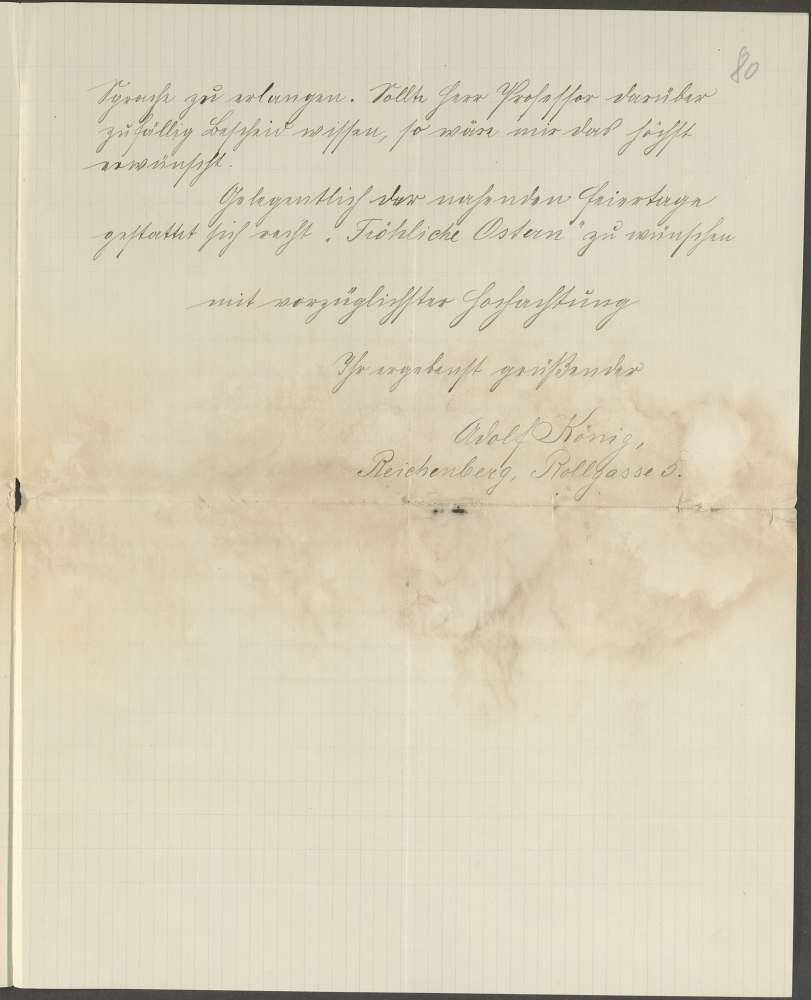 80
Sprache zu erlangen. Sollte Herr Professor darüber
zufällig Bescheid wissen, so wäre mir das höchst
erwünscht.
Gelegentlich der nahenden Feiertage
gestattet sich recht „Fröhliche Ostern" zu wünschen
mit vorzüglichster Hochachtung
Ihr ergebenst grüßender
Adolf König,
Reichenberg, Rollgasse 5.